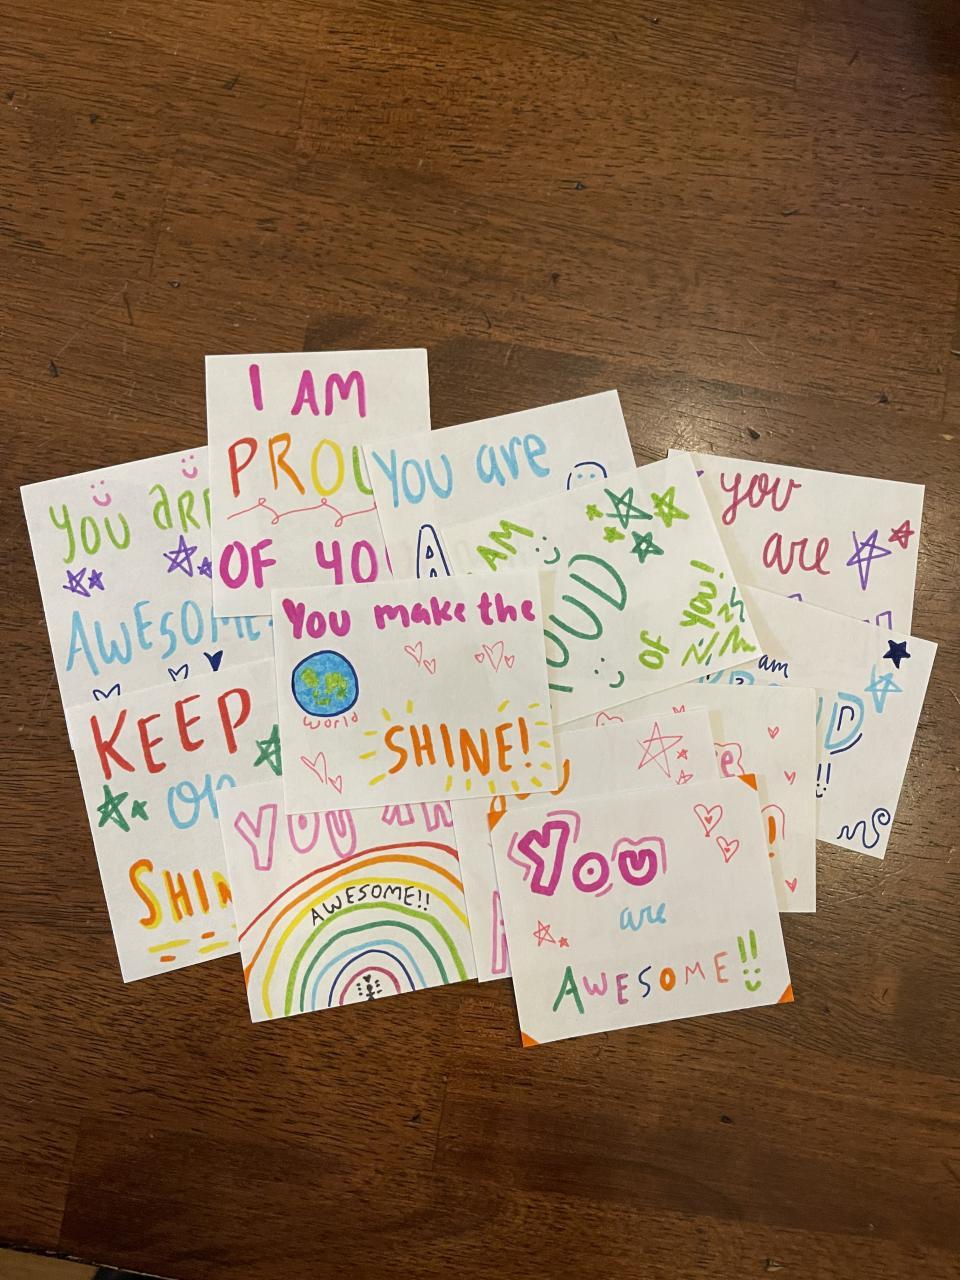 I AM
PROU
OF YOU
You are
A
YOU ARE
AWESOME!
AM
OUD
OF YOU!
you
are
am
D
!!
You make the
world
SHINE!
KEEP
ON
SHIN
YOU AR
AWESOME!!
You
are
AWESOME!!